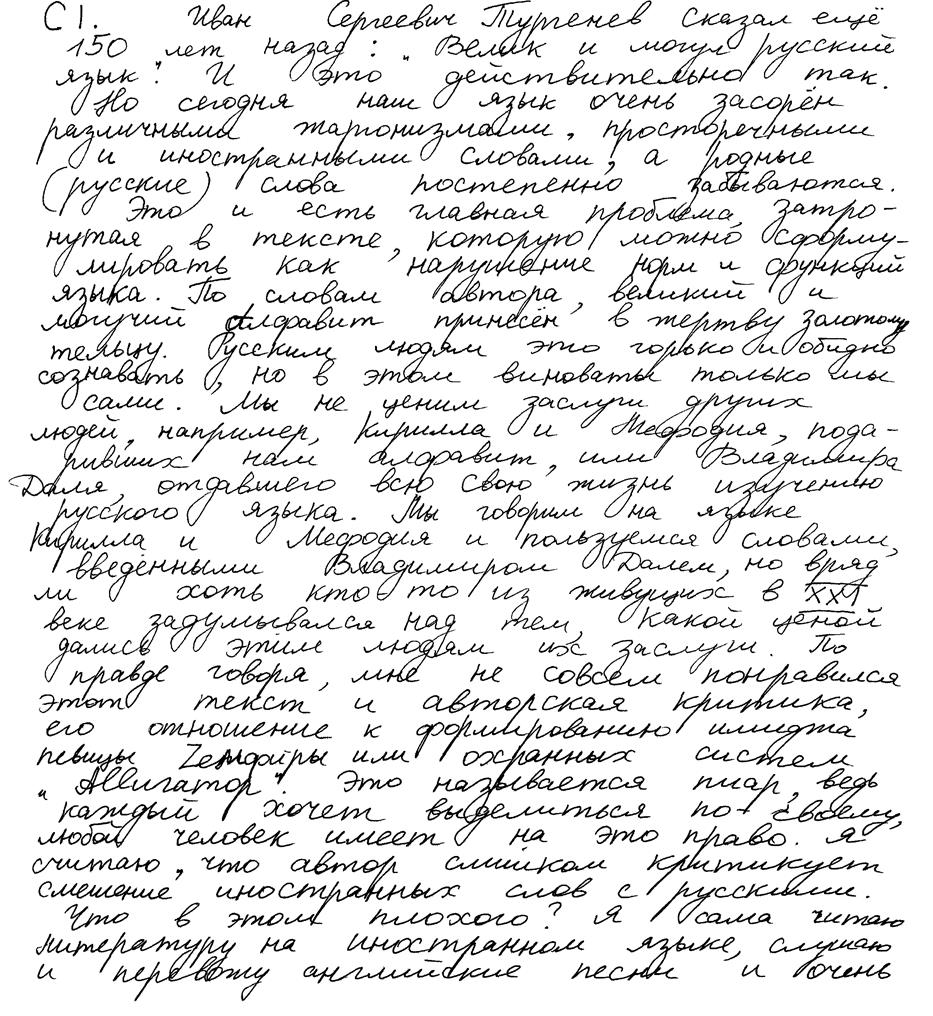 С1. Иван Сергеевич Тургенев сказал ещё
150 лет назад: „Велик и могуч русский
язык". И это действительно так.
Но сегодня наш язык очень засорён
различными жаргонизмами, просторечными
и иностранными словами, а родные
(русские) слова постепенно забываются.
Это и есть главная проблема, затро-
нутая в тексте, которую можно сформу-
лировать как нарушение норм и функций
языка. По словам автора, великий и
могучий алфавит принесён в жертву золотому
тельцу. Русским людям это горько и обидно
сознавать, но в этом виноваты только мы
сами. Мы не ценим заслуги других
людей, например, Кирилла и Мефодия, пода-
ривших нам алфавит, или Владимира
Даля, отдавшего всю свою жизнь изучению
русского языка. Мы говорим на языке
Кирилла и Мефодия и пользуемся словами,
введёнными Владимиром Далем, но вряд
ли хоть кто-то из живущих в XXI
веке задумывался над тем, какой ценой
дались этим людям их заслуги. По
правде говоря, мне не совсем понравился
этот текст и авторская критика,
его отношение к формированию имиджа
певицы Zемфиры или охранных систем
„Alligатор". Это называется пиар, ведь
каждый хочет выделиться по-своему,
любой человек имеет на это право. Я
считаю, что автор слишком критикует
смешение иностранных слов с русскими.
Что в этом плохого? Я сама читаю
литературу на иностранном языке, слушаю
и перевожу английские песни и очень